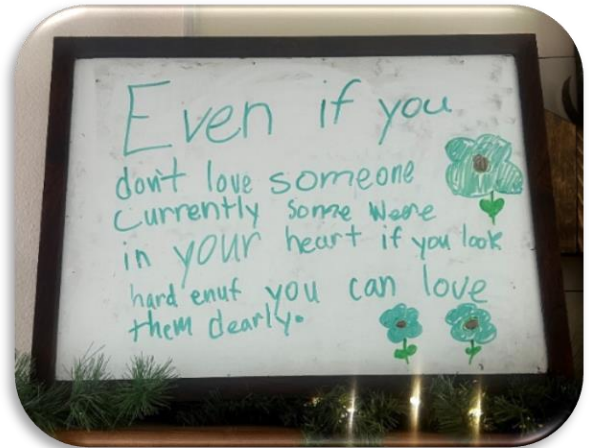 Even if you
don't love someone
Currently some weere
in your heart if you look
hard enuf you can love
them dearly.